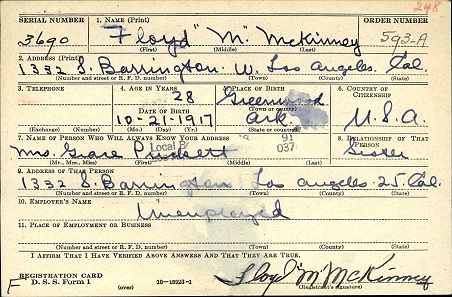 248
SERIAL NUMBER 1. NAME (Print) ORDER NUMBER
3690 Floyd "M." McKinney 593-A
(First) (Middle) (Last)
2. ADDRESS (Print)
1332 S. Barrington W. Los Angeles Cal.
(Number and street or R. F. D. number) (Town) (County) (State)
3. TELEPHONE 4. AGE IN YEARS 5. PLACE OF BIRTH 6. COUNTRY OF CITIZENSHIP
28 Greenwood
DATE OF BIRTH (Town or county)
10-21-1917 Ark. U.S.A.
(Exchange) (Number) (Mo.) (Day) (Yr.) (State or country)
7. NAME OF PERSON WHO WILL ALWAYS KNOW YOUR ADDRESS 8. RELATIONSHIP OF THAT PERSON
Local Bo 91
037
Mrs. Grace Sister
(Mr., Mrs., Miss) (First) (Middle) (Last)
9. ADDRESS OF THAT PERSON
1332 S. Barrington Los Angeles 25 Cal.
(Number and street or R. F. D. number) (Town) (County) (State)
10. EMPLOYER'S NAME
Unemployed
11. PLACE OF EMPLOYMENT OR BUSINESS
(Number and street or R. F. D. number) (Town) (County) (State)
I AFFIRM THAT I HAVE VERIFIED ABOVE ANSWERS AND THAT THEY ARE TRUE.
REGISTRATION CARD
D. S. S. Form 1 (over) 16—18923-1
Floyd "M" McKinney
(Registrant's signature)
F